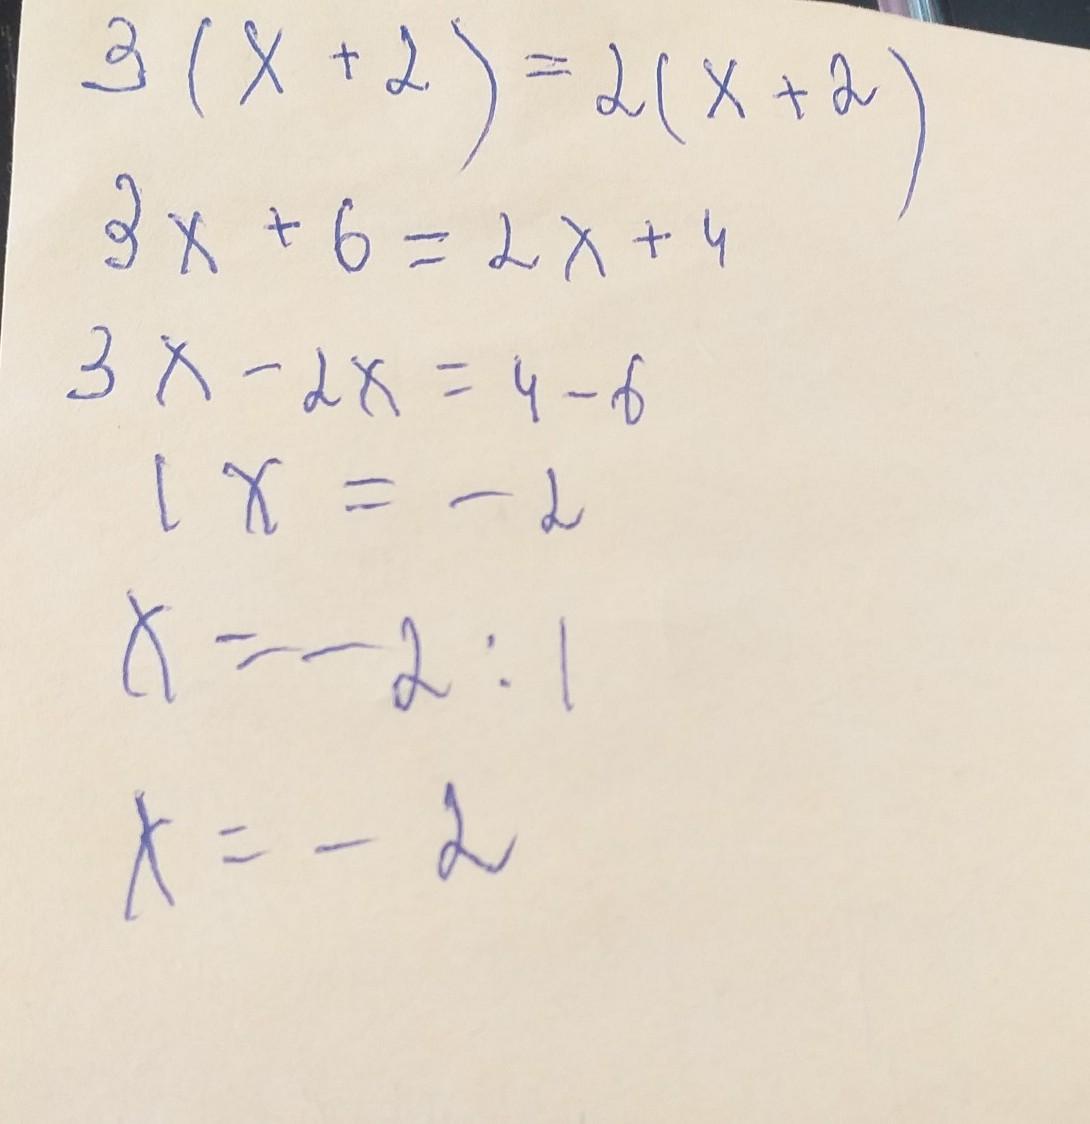 3(x+2)=2(x+2)
3x+6=2x+4
3x-2x=4-6
1x=-2
x=-2:1
x=-2